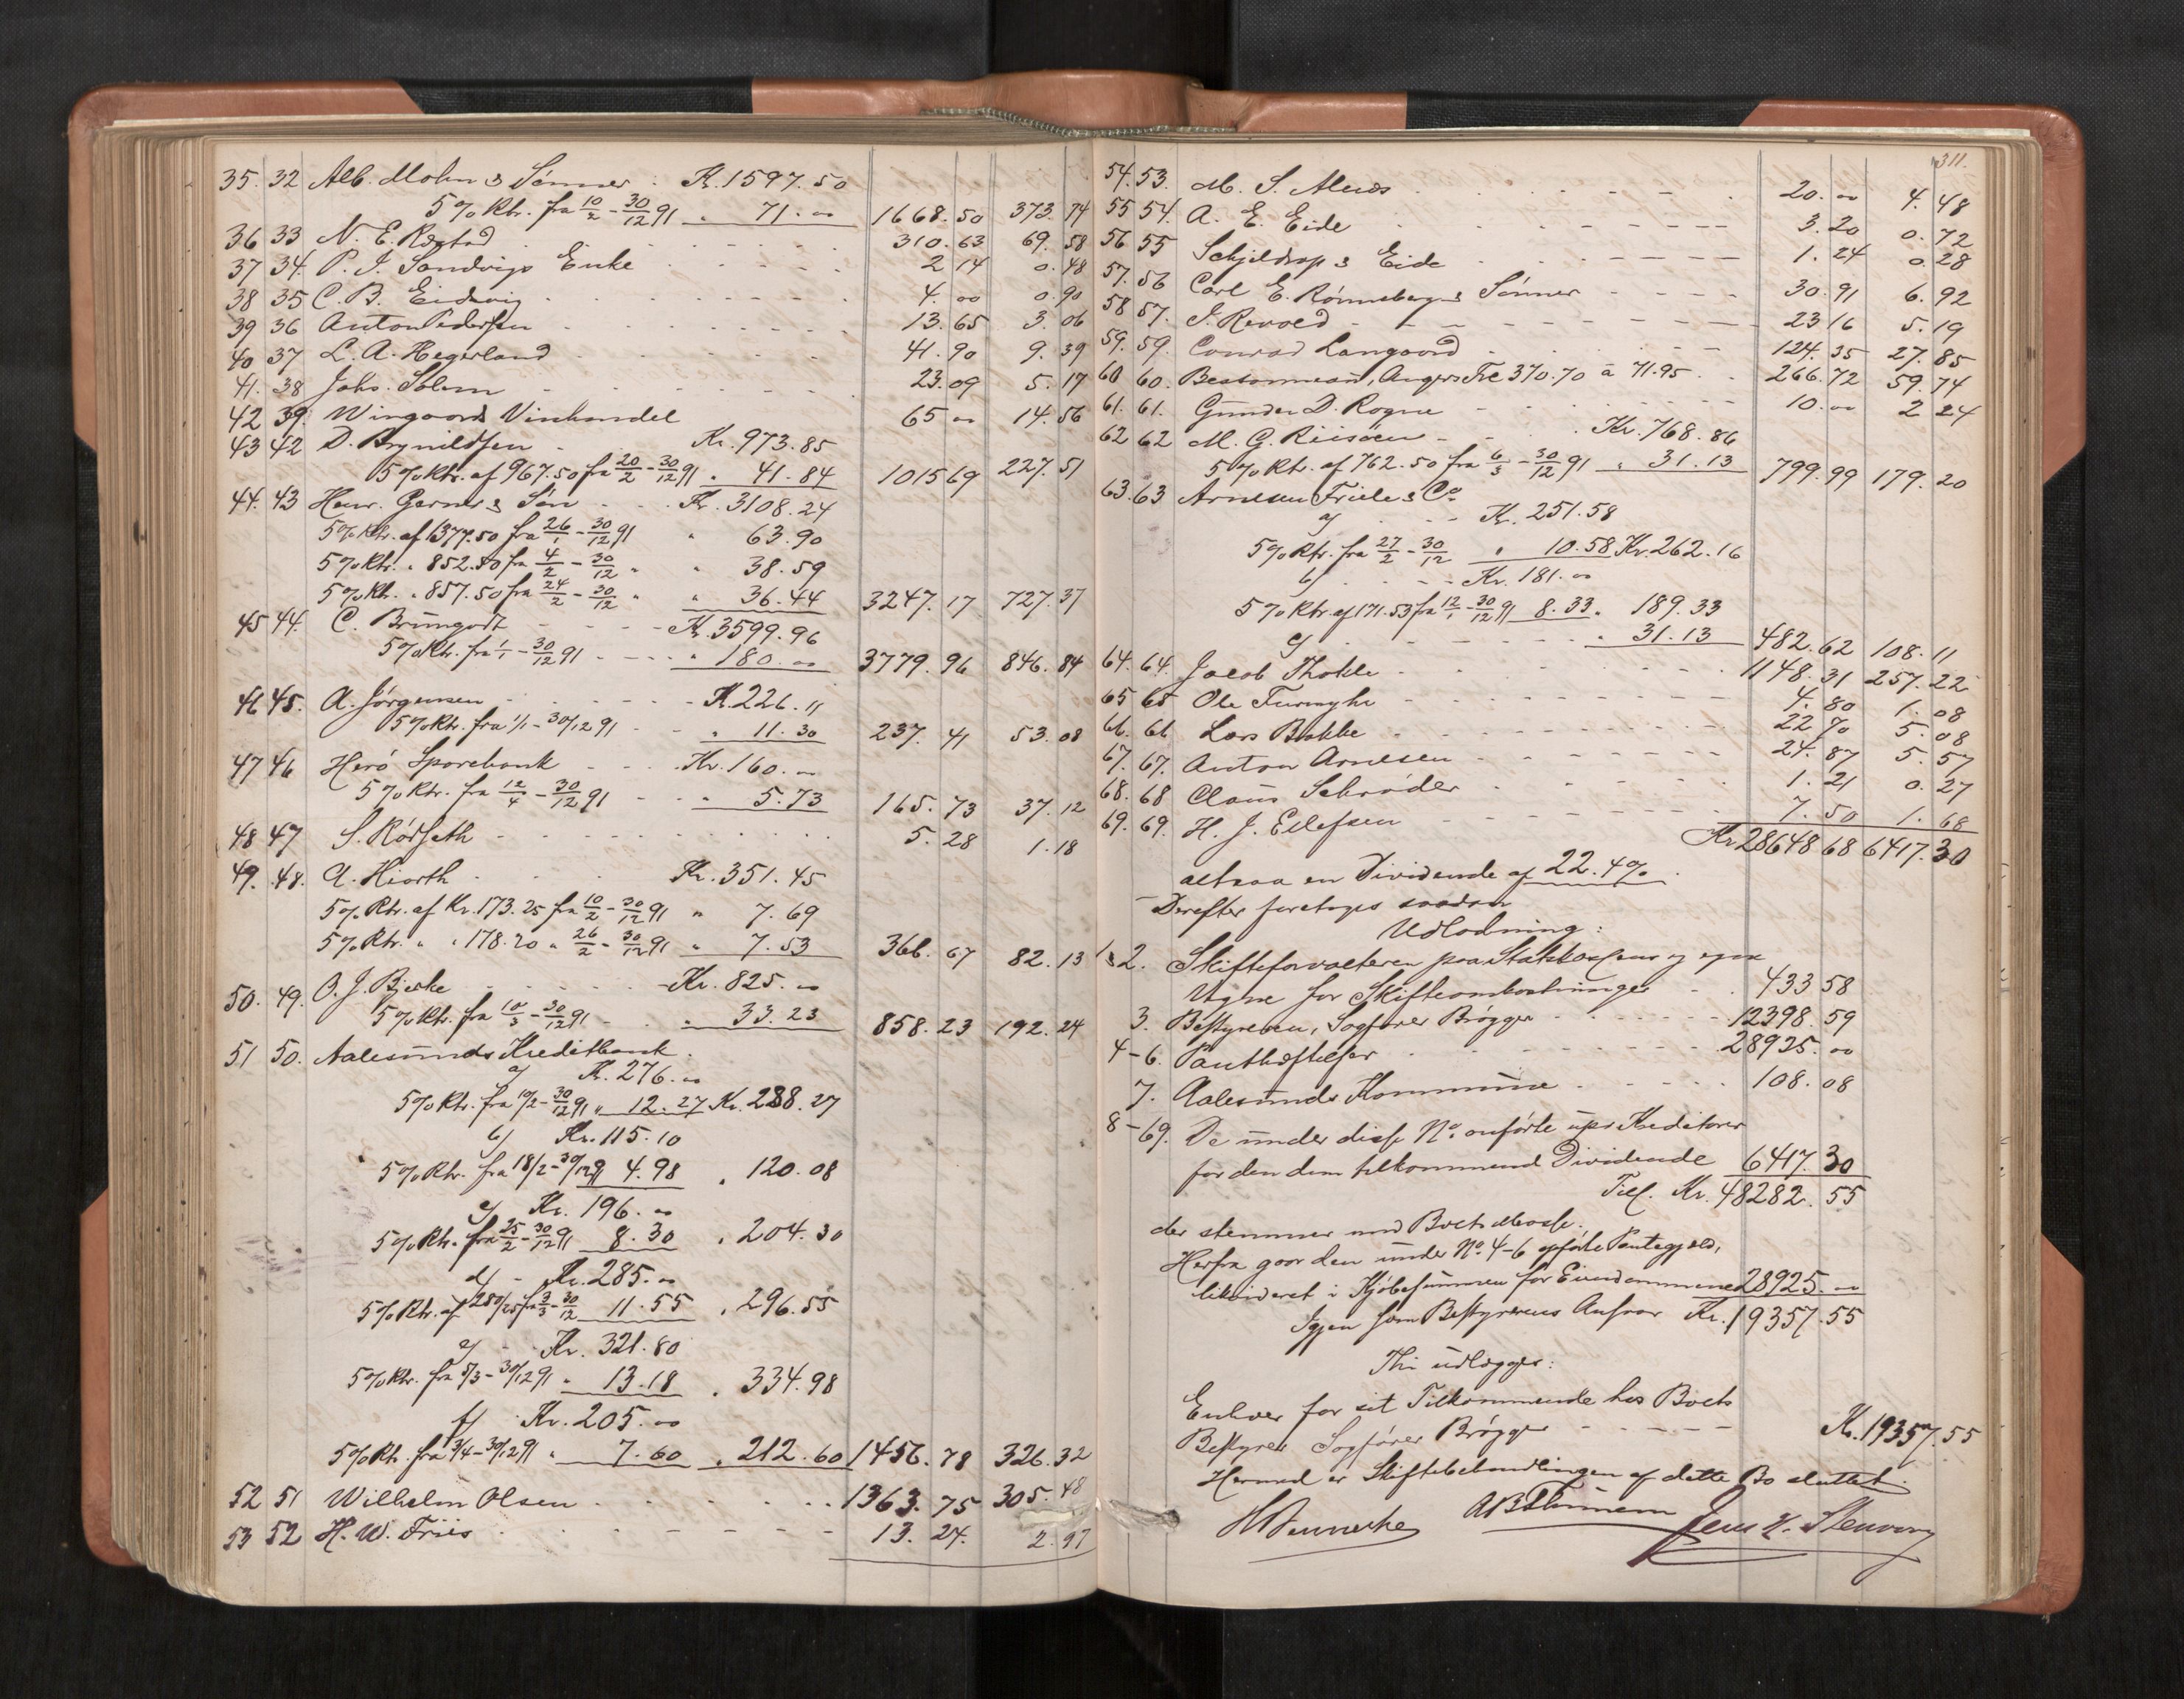 35. 32 Alb. Mohn & Sønner. Kr. 1597.50
5% Rtr. fra 10/2 - 30/12 91 " 71.00 1668.50 373.74
36 33 N. E. Røstad 310.63 69.58
37 34. P. I. Sandvigs Enke 2 14 0.48
38 35 C. B. Eidsvig 4.00 0.90
39 36 Anton Pedersen 13.65 3.06
40 37 L. A. Hegerland 41.90 9.39
41. 38 Johs. Solem 23.09 5.17
42 39. Wingaards Vinhandel 65 00 14.56
43 42 D. Brynildsen Kr. 973.85
5% Rtr. af 967.50 fra 20/2 - 30/12 91 " 41.84 1015 69 227.51
44. 43 Henr. Gerner & Søn Kr. 3108.24
5% Rtr. af 1377.50 fra 26/1 - 30/12 91 " 63.90
5% Rtr. " 852.50 fra 4/2 - 30/12 " " 38.59
5% Rtr. " 857.50 fra 24/2 - 30/12 " " 36.44 3247.17 727.37
45 44. C. Brungodt Kr. 3599.96
5% Rtr. fra 1/1 - 30/12 91 " 180.00 3779.96 846.84
46 45. A. Jørgensen Kr. 226.11
5% Rtr. fra 1/1 - 30/12 91 " 11.30 237.41 53.08
47 46 Herø Sparebank Kr. 160.00
5% Rtr. fra 12/4 - 30/12 91 " 5.73 165.73 37.12
48 47 S. Rødseth 5.28 1.18
49. 48. A. Hiorth Kr. 351.45
5% Rtr. af Kr. 173.25 fra 10/2 - 30/12 91 " 7.69
5% Rtr. " " 178.20 " 26/2 - 30/12 91 " 7.53 366.67 82.13
50. 49. O. J. Bjerke Kr. 825.00
5% Rtr. fra 10/3 - 30/12 91 " 33.23 858.23 192.24
51 50. Aalesunds Kreditbank.
a/ Kr. 276.00
5% Rtr. fra 10/2 - 30/12 91 " 12.27 Kr. 288.27
b/ Kr. 115.10
5% Rtr. fra 18/2 - 30/12 91 4.98 " 120.08
c/ Kr. 196.00
5% Rtr. fra 25/2 - 30/12 91 8.30 " 204.30
d/ Kr. 285.00
5% Rtr. af 280/25 fra 3/3 - 30/12 11.55 " 296.55
e/ Kr. 321.80
5% Rtr. fra 5/3 - 30/12 91 " 13.18 " 334.98
f/ Kr. 205.00
5% Rtr. fra 3/4 - 30/12 91 " 7.60 " 212.60 1456.78 326.32
52 51 Wilhelm Olsen 1363.75 305.48
53 52 H. W. Friis 13.24. 2.97
311.
54. 53. M. S. 20.00 4.48
55 54. A. E. Eide 3.20 0.72
56 55 Schjeldrop & Eide 1.24 0.28
57. 56 Carl E. Rønneberg & Sønner 30.91 6.92
58 57. I. Revold 23 16 5.19
59. 59. Conrad Langaard 124.35 27.85
60 60. Angers Frc 370.70 à 71.95 266.72 59.74
61. 61. Gunder D. Rogne 10.00 2 24
62 62 M. G. Riisøen Kr. 768.86
5% Rtr. af 762.50 fra 6/3 - 30/12 91 " 31.13 799.99 179.20
63. 63 Arnesen Friele & Co
a/ Kr. 251.58
5% Rtr. fra 27/2 - 30/12 " 10.58 Kr. 262.16
b/ Kr. 181.00
5% Rtr. af 171.53 fra 12/1 - 30/12 91 8.33 " 189.33
c/ " 31.13 482.62 108.11
64. 64. Jacob Thokle 1148.31 257.22
65 65 Ole Furmyhr 4.80 1.08
66. 66 Lars Bakke 22 70 5.08
67. 67. Anton Arnesen 24.87 5.57
68. 68 Claus Schrøder 1.21 0.27
69. 69. H. J. Ellefsen 7.50 1.68
Kr 28648 68 6417.30
altsaa en Dividende af 22.4%.
Derefter foretoges saadan
Udlodning:
1 & 2. Skifteforvalteren paa Statskassens og egne
Vegne for Skifteomkostninger 433 58
3. Bestyreren, Sagfører Brøgger 12398.59
4-6. Panthæftelser 28925.00
7. Aalesunds Kommune 108.08
8-69. De under disse No. anførte Kreditorer
for den dem tilkommende Dividende 6417.30
Tils. Kr. 48282.55
der stemmer med Boets Masse.
Herfra gaar den under No. 4-6 opførte Pantegjæld,
likvideret i Kjøbesummen for Eiendommene 28925.00
Igjen som Bestyrerens Ansvar Kr. 19357.55
Thi udlægges:
Enhver for sit Tilkommende hos Boets
Bestyrer Sagfører Brøgger Kr. 19357.55
Hermed er Skiftebehandlingen af dette Bo sluttet.